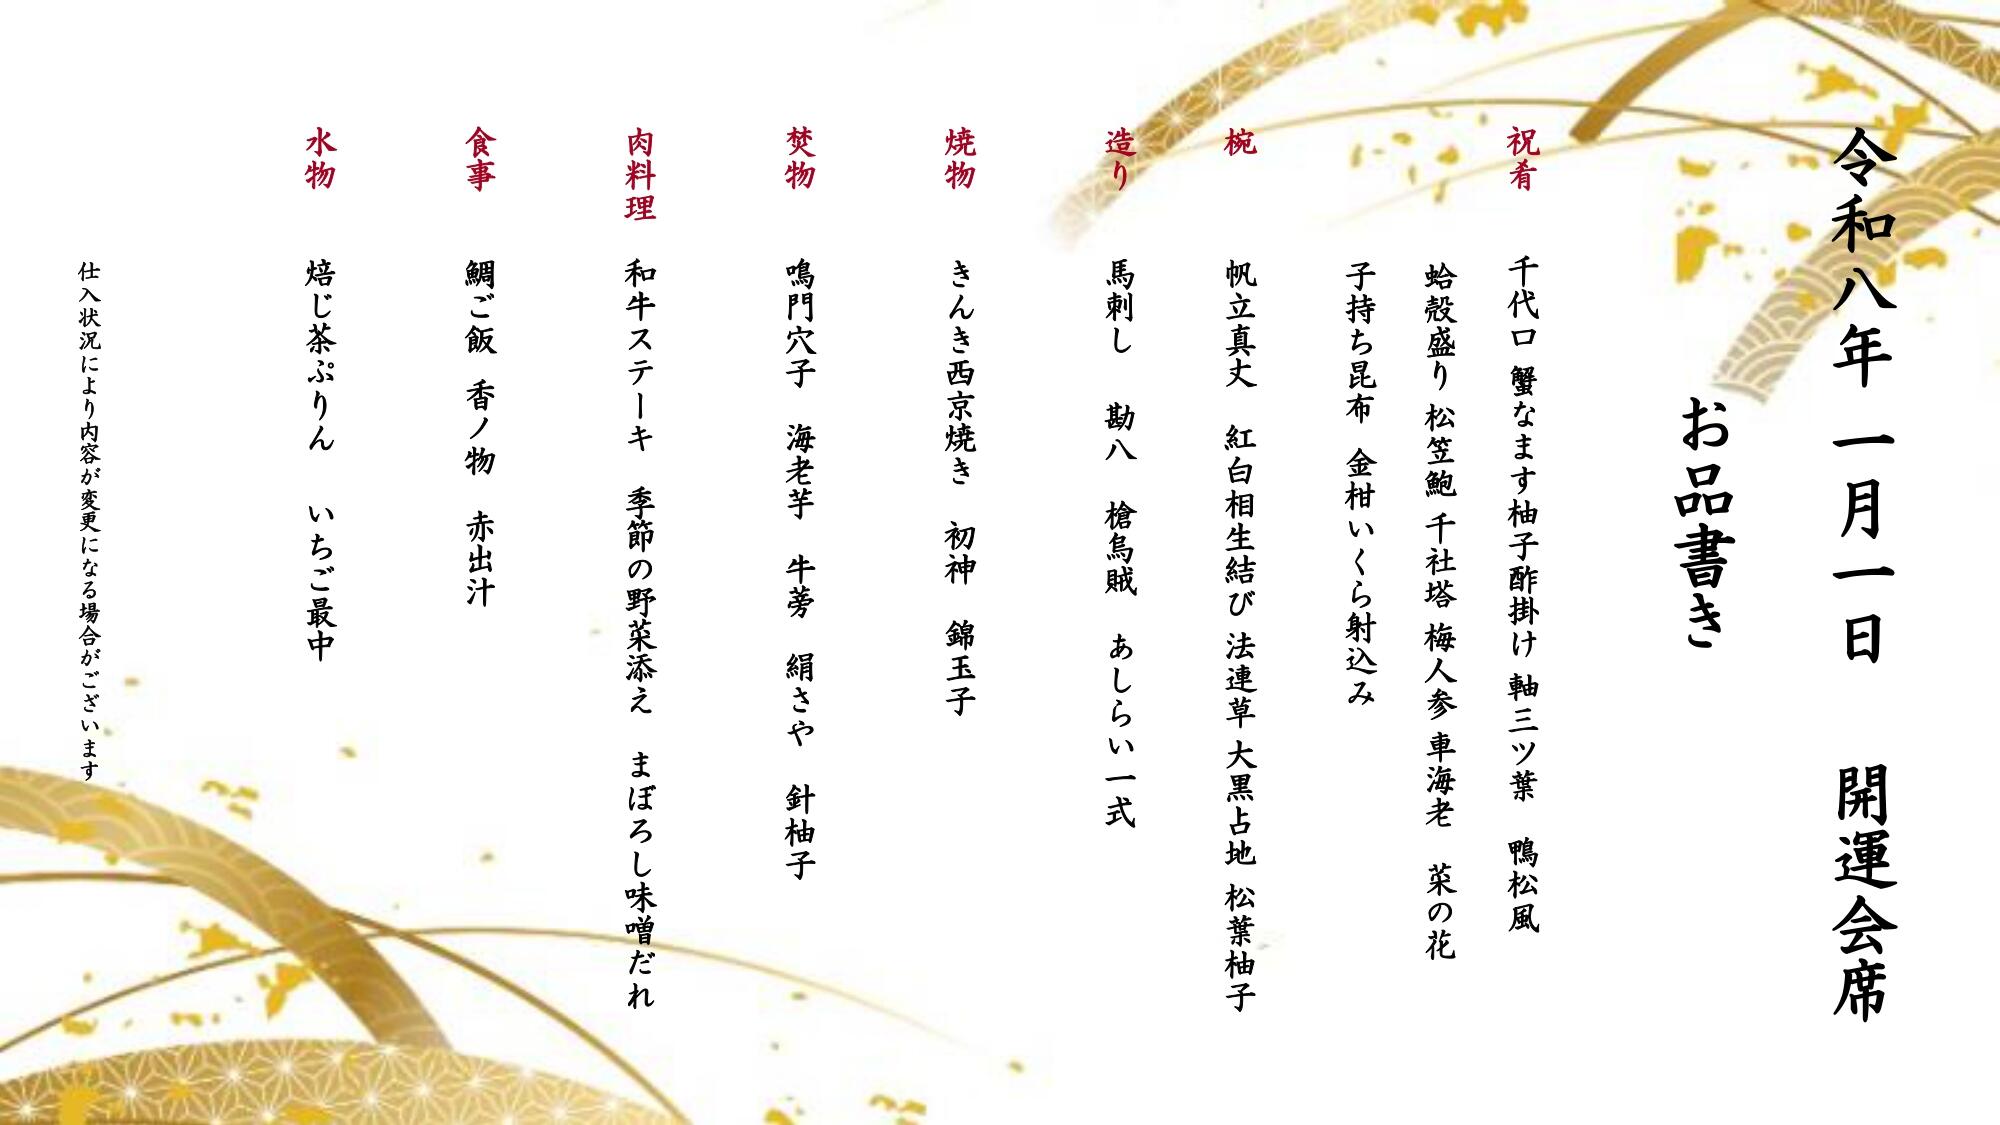 令和八年 一月一日　開運会席
お品書き
祝肴　千代口 蟹なます柚子酢掛け 軸三ツ葉　鴨松風
蛤殻盛り 松笠鮑 千社塔 梅人参 車海老　菜の花
子持ち昆布 金柑いくら射込み
椀　帆立真丈　紅白相生結び 法連草 大黒占地 松葉柚子
造り　馬刺し　勘八　槍烏賊　あしらい一式
焼物　きんき西京焼き　初神　錦玉子
焚物　鳴門穴子　海老芋　牛蒡　絹さや　針柚子
肉料理　和牛ステーキ　季節の野菜添え　まぼろし味噌だれ
食事　鯛ご飯 香ノ物　赤出汁
水物　焙じ茶ぷりん　いちご最中
仕入状況により内容が変更になる場合がございます